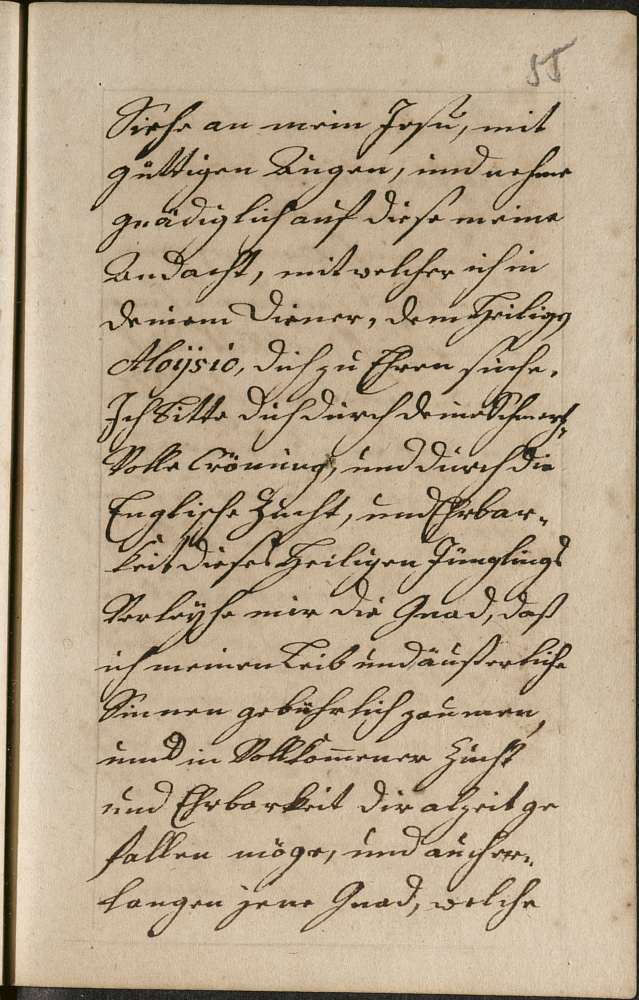 55
Siehe an mein Jesu, mit
güttigen Augen, und nehme
gnädiglich auf diese meine
Andacht, mit welcher ich in
deinem Diener, dem Heilig
Aloÿsio, dich zu Ehren suche.
Ich bitte dich durch deine Schmertz¬
Volle Crönung, und durch die
Englische Zucht, und Ehrbar¬
keit dieses Heiligen Jünglings
Verleÿhe mir die Gnad, daß
ich meinen Leib und äußerliche
Sinnen gebührlich zäumen,
und in Vollkom̄ener Zucht
und Ehrbarkeit dir alzeit ge
fallen möge, und auch er¬
langen jene Gnad, welche